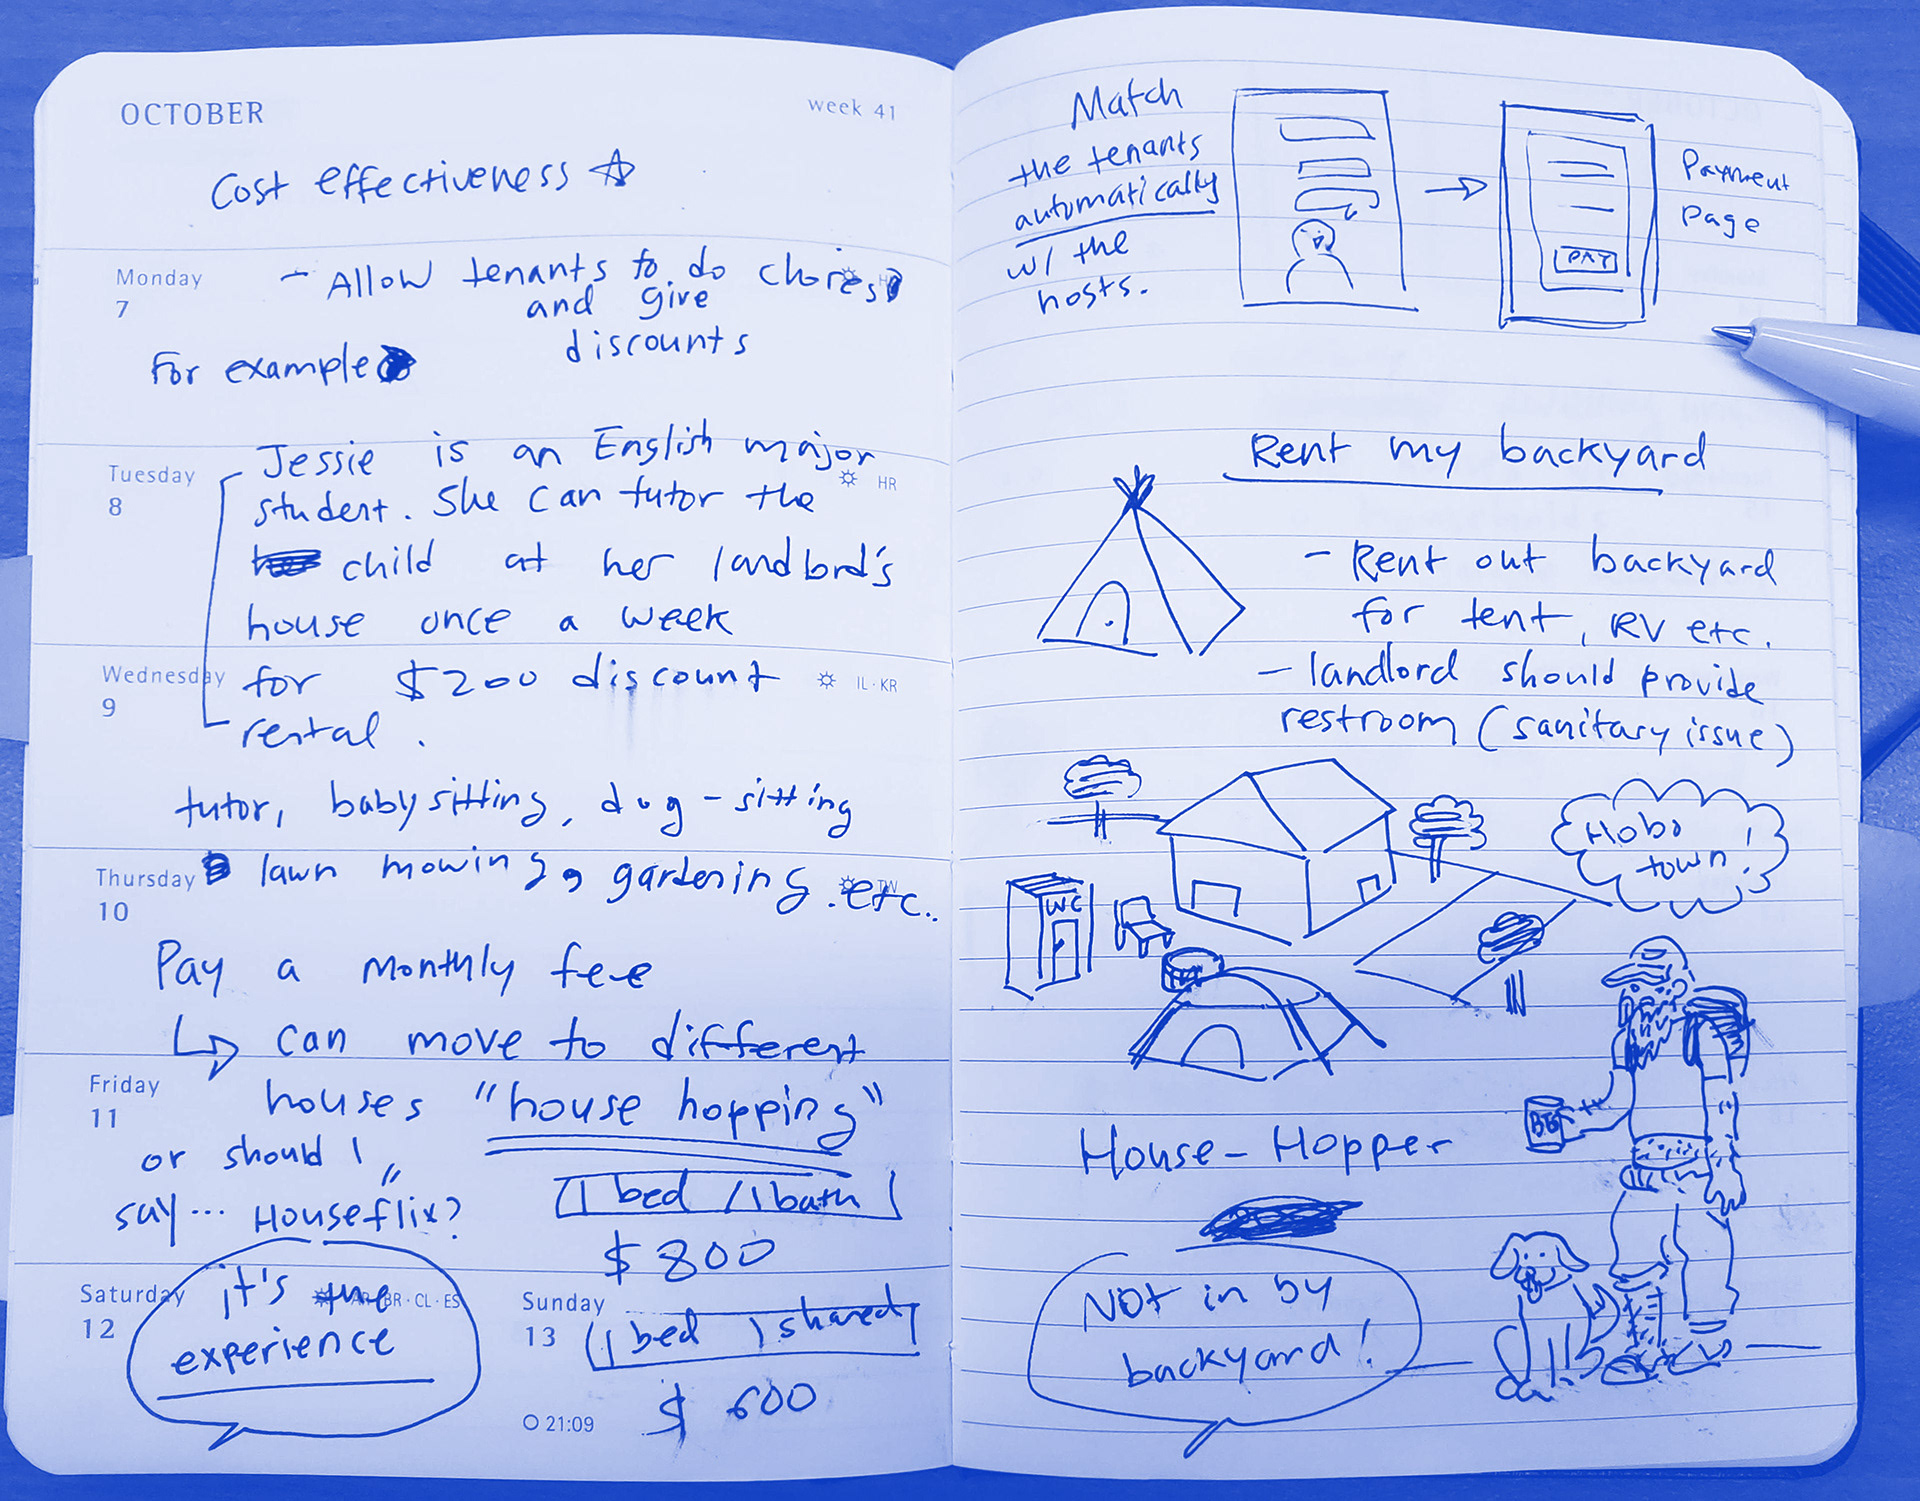 OCTOBER
week 41
Cost effectiveness
Monday
7
- Allow tenants to do chores
and give
discounts
For example
Tuesday
8
HR
Jessie is an English major
student. She can tutor the
child at her landlord's
house once a week
Wednesday
9
IL · KR
for $200 discount
rental.
tutor, babysitting, dog-sitting
Thursday
10
TW
lawn mowing, gardening. etc..
Pay a monthly fee
can move to different
Friday
11
houses "house hopping"
or should I
say... "Houseflix?
1 bed / 1 bath
$800
Saturday
12
BR · CL · ES
it's the
experience
Sunday
13
1 bed / shared
$600
21:09
Match
the tenants
automatically
w/ the
hosts.
PAY
Payment
Page
Rent my backyard
- Rent out backyard
for tent, RV etc.
- landlord should provide
restroom (sanitary issue)
Hobo
town!
WC
House-Hopper
Not in by
backyard!